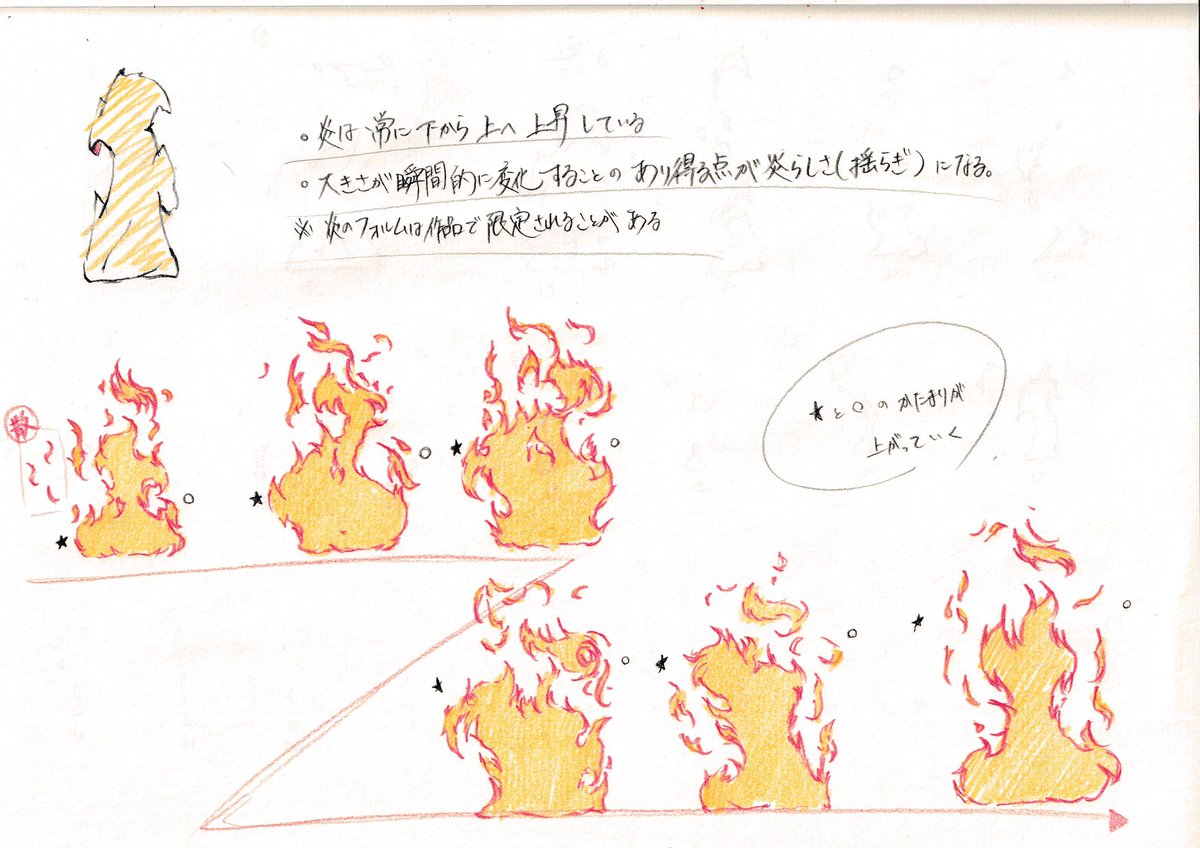 ○ 炎は常に下から上へ上昇している
○ 大きさが瞬間的に変化することのあり得る点が炎らしさ(揺らぎ)になる。
※ 炎のフォルムは作品で限定されることがある
★と○のかたまりが
上がっていく